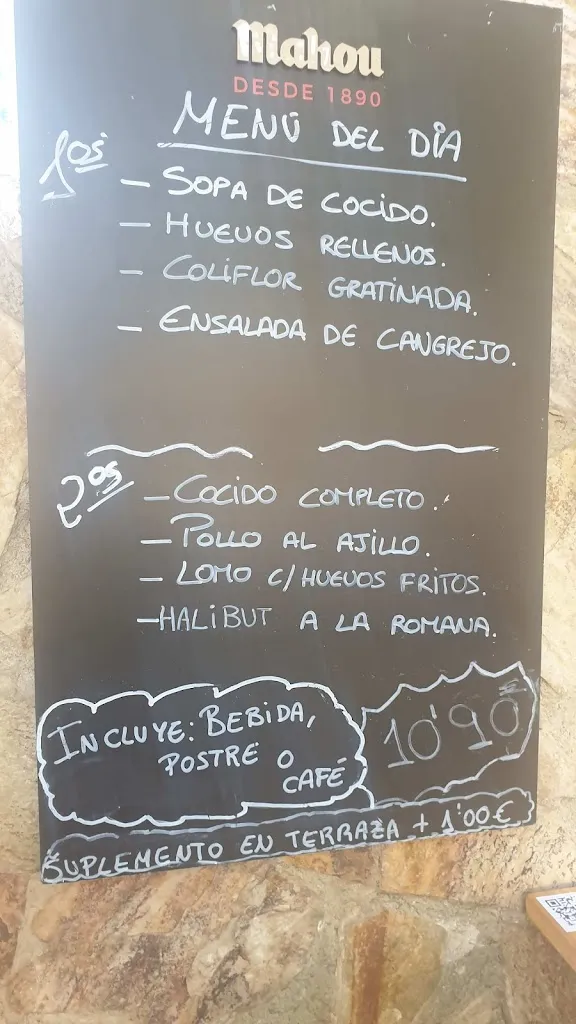 Mahou
DESDE 1890
MENÚ DEL DÍA
1os
- SOPA DE COCIDO.
- HUEVOS RELLENOS.
- COLIFLOR GRATINADA.
- ENSALADA DE CANGREJO.
2os
- COCIDO COMPLETO.
- POLLO AL AJILLO.
- LOMO C/HUEVOS FRITOS.
- HALIBUT A LA ROMANA.
INCLUYE: BEBIDA,
POSTRE O
CAFÉ
10'90€
SUPLEMENTO EN TERRAZA + 1'00€